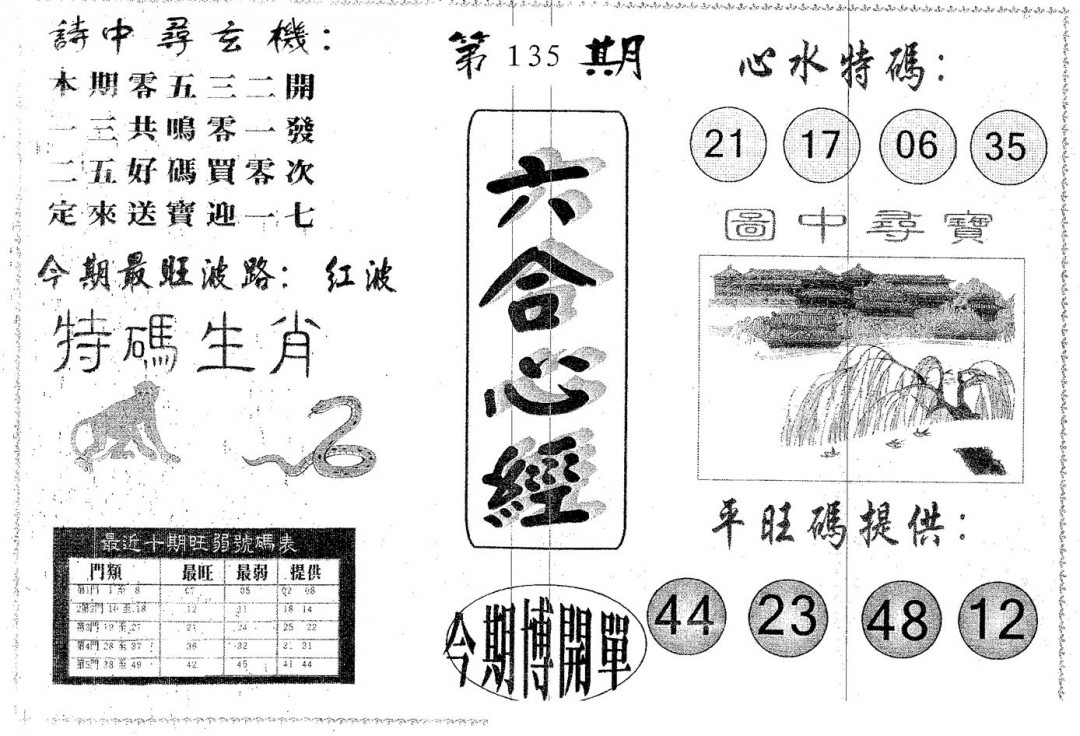 詩中尋玄機：
本期零五三二開
一三共鳴零一發
二五好碼買零次
定來送寶迎一七
今期最旺波路：紅波
特碼生肖
最近十期旺弱號碼表
門類 最旺 最弱 提供
第1門 1 至 8 07 05 02 08
12 11 18 14
第3門 19 至 27 24 25 22
第4門 28 至 37 36 32 31
第5門 38 至 49 42 45 41 44
第 135 期
六合心經
今期博開單
心水特碼：
21 17 06 35
圖中尋寶
平旺碼提供：
44 23 48 12